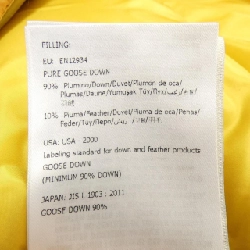 FILLING:
EU: EN12934
PURE GOOSE DOWN
90% Piumino/Down/Duvet/Plumon de oca/
Plumas/Daune/Yumusak Tüy/
10% Piuma/Feather/Duvet/Pluma de oca/Penas/
Feder/Tüy/Перо/
USA: USA - 2000
Labeling standard for down and feather products
GOOSE DOWN
(MINIMUM 90% DOWN)
JAPAN: JIS L 1903: 2011
GOOSE DOWN 90%